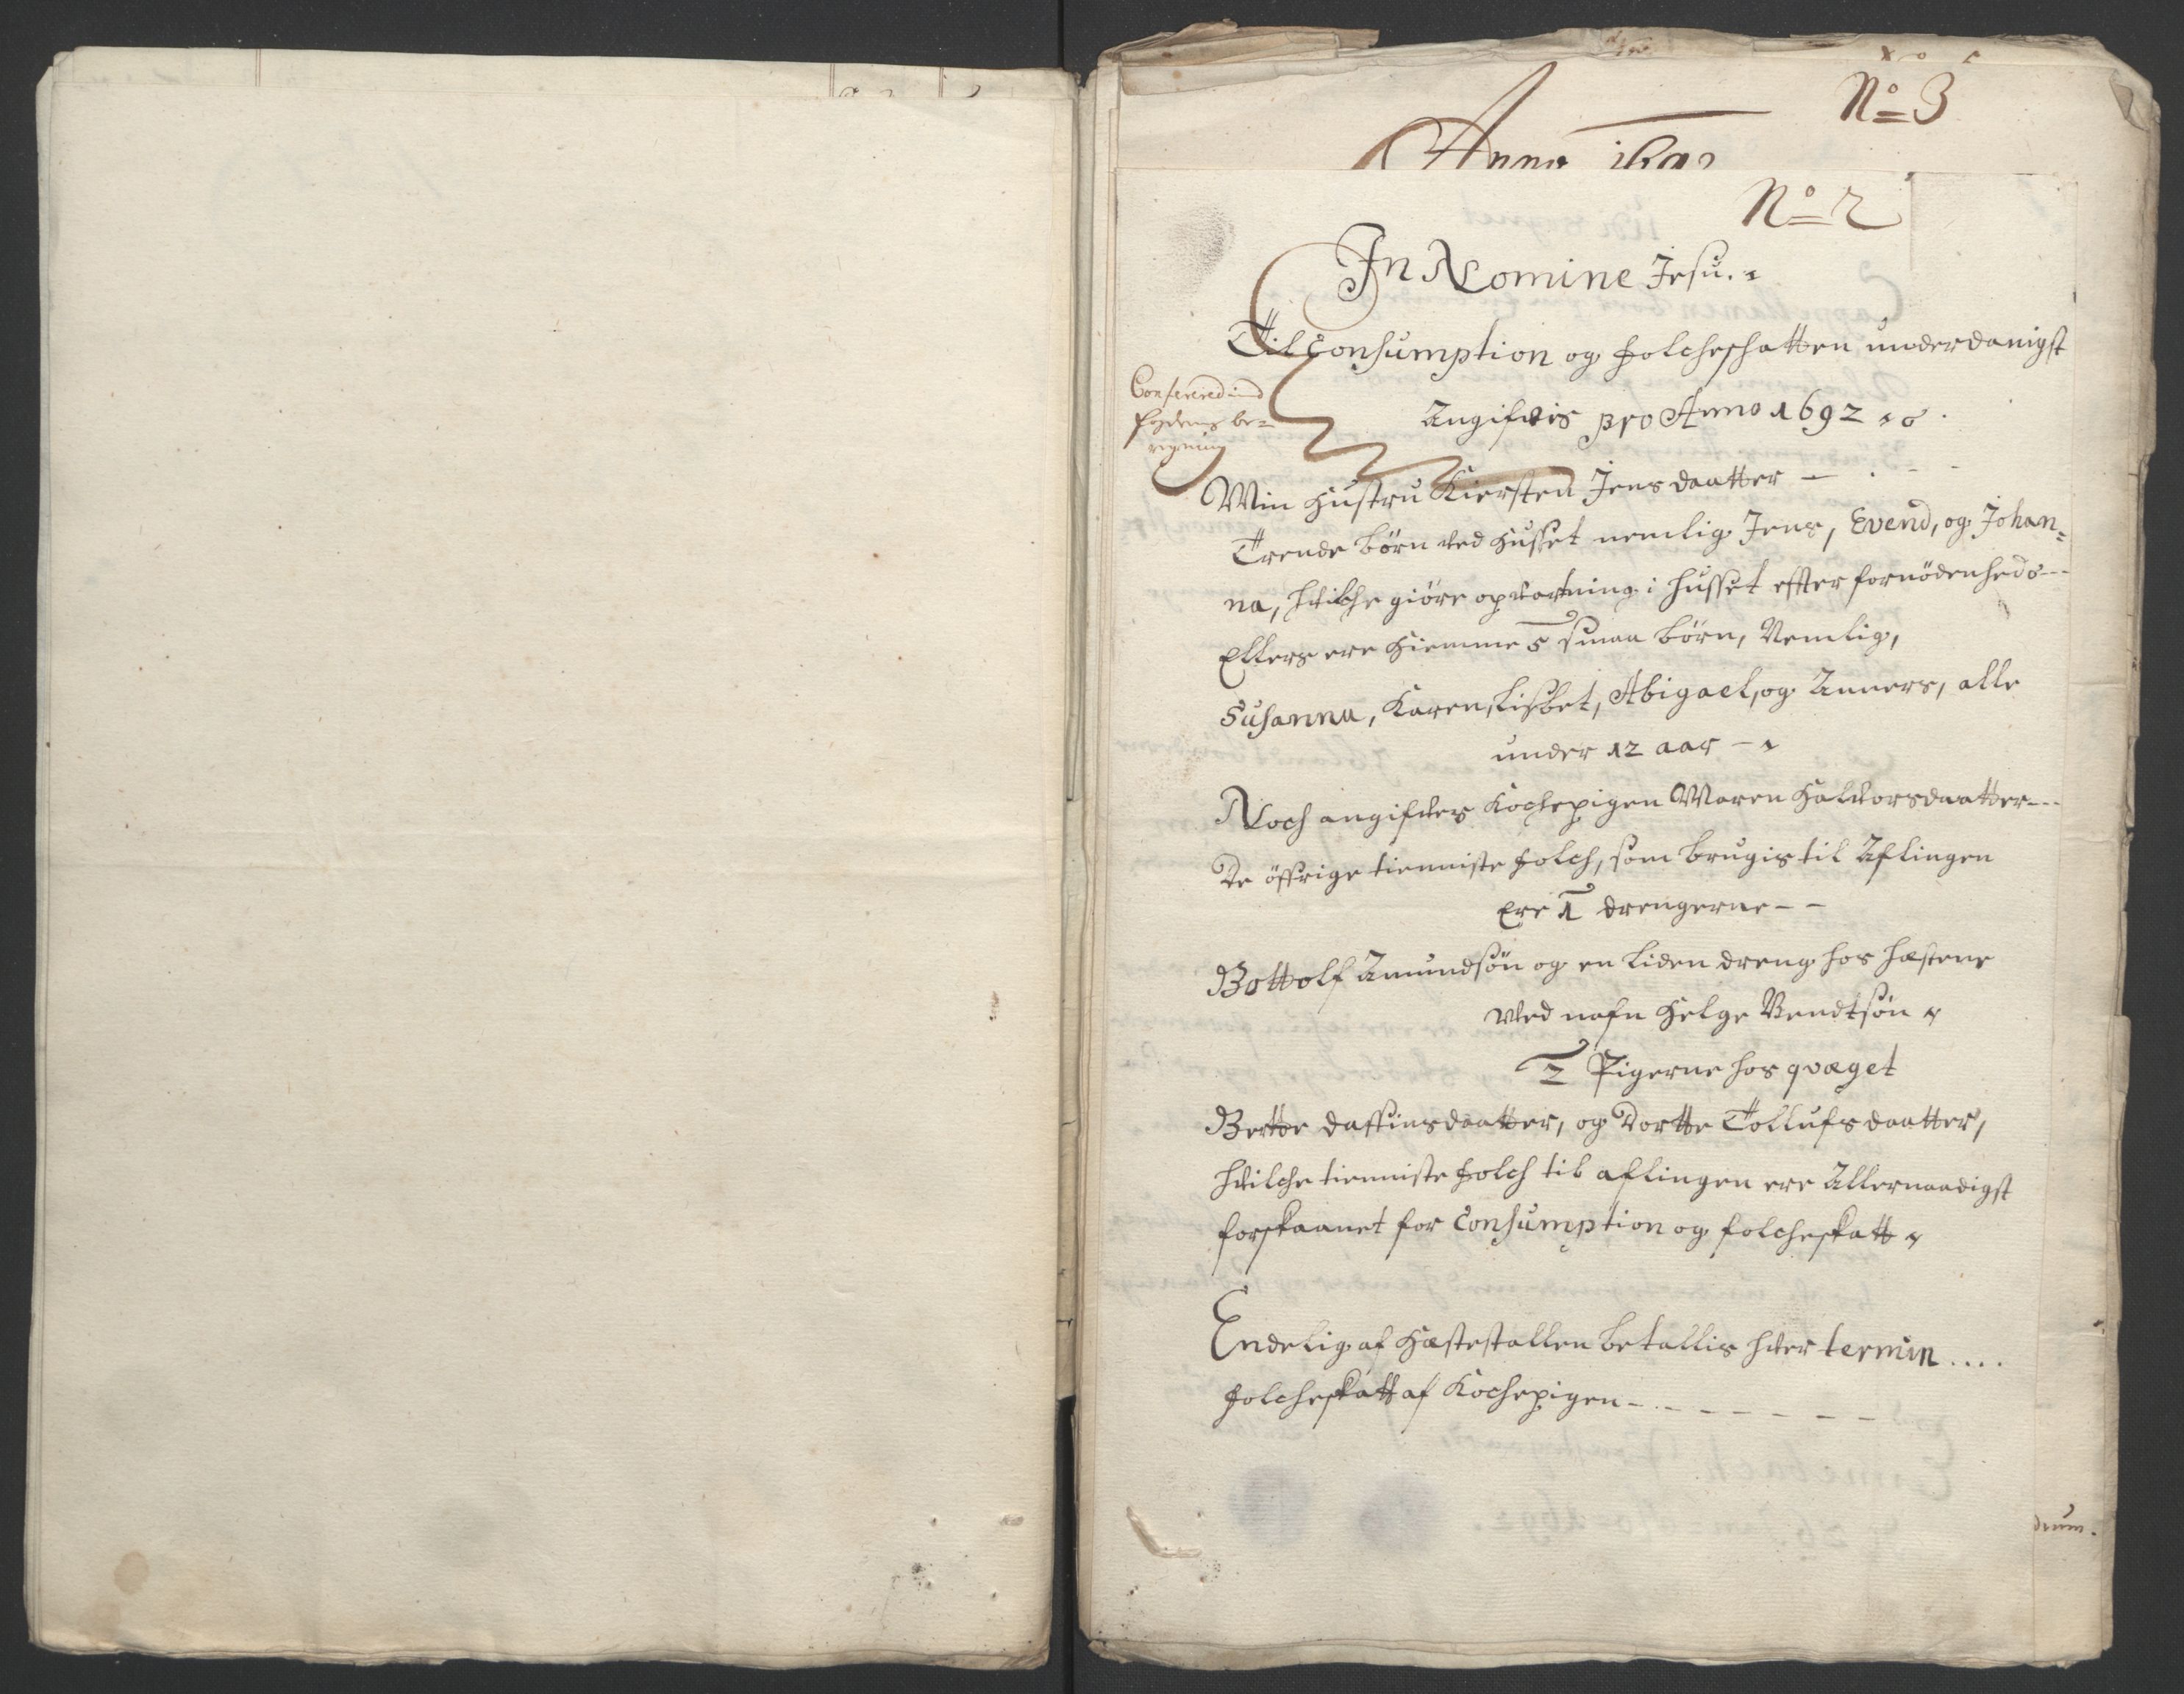 No 3
Anno 1692
No 2
In Nomine Jesu.
Til Consumption og Folcheschatten underdanigst
Angifvis pro Anno 1692
Conferered imod
fogdens be=
regning
Min Hustru Kiersten Jensdaatter —
Trende börn ved Husset nemlig Jens, Evend, og Johan=
na, hvilche giöre opvartning i husset effter fornödenheds---
Ellers ere Hiemme 5 smaa börn, Nemlig,
Susanna, Karen, Lisbet, Abigael, og Anners, alle
under 12 aar —
Noch angifves Kochepigen Maren Halvorsdaatter---
De öffrige tienniste Folch, som brugis til Aflingen
Ere 1 drengerne - -
Bottolf Amundsön og en liden dreng hos hæstene
ved nafn Helge Bendtsön
2 Pigerne hos qvæget
Bertte Daffinsdaatter, og Dortte Tollufsdaatter,
hvilche tienniste Folch til aflingen ere Allernaadigst
forskaanet for Consumption og folcheskatt
Endelig af Hæstestallen betallis hver termin ....
Folcheskatt af Kochepigen - - - - - - - -